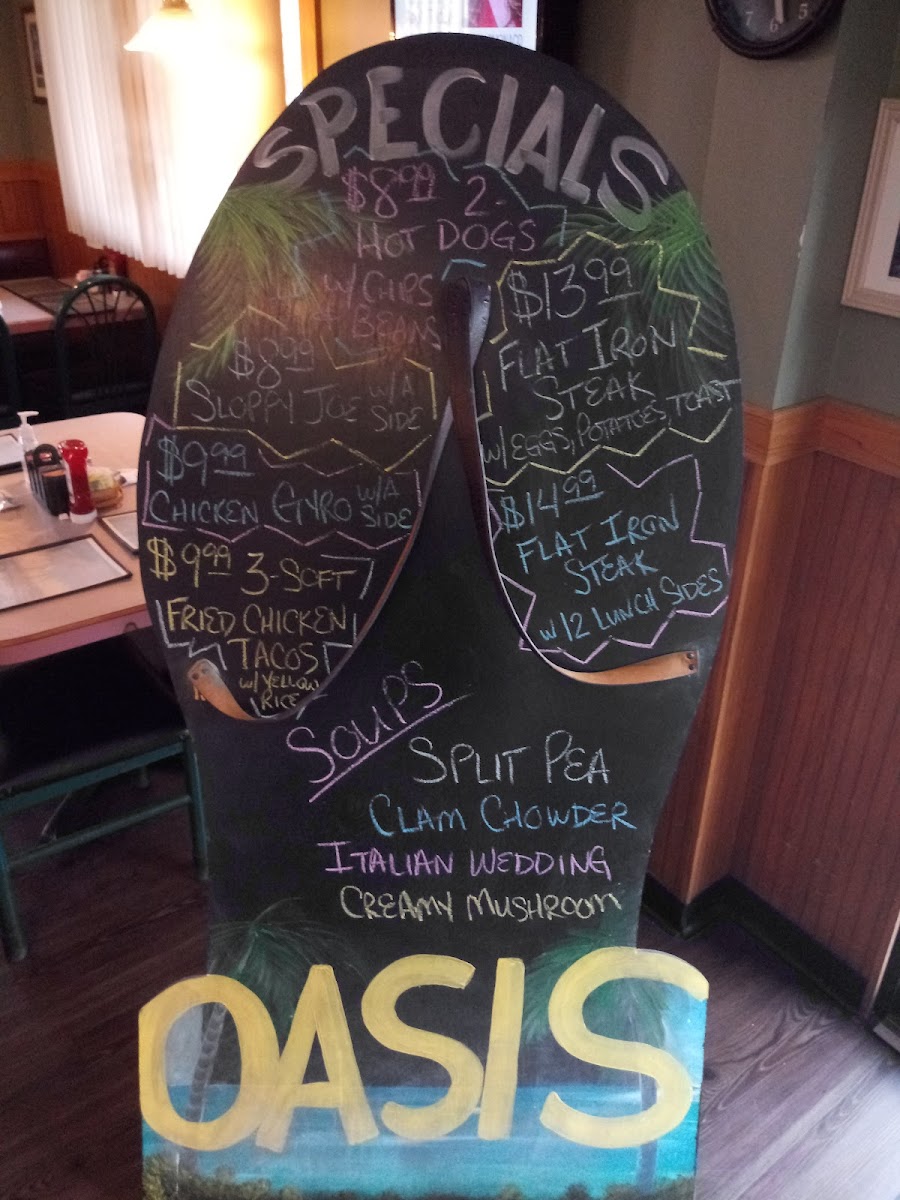 SPECIALS
$8.99 2-
HOT DOGS
W/ CHIPS
BEANS
$8.99
SLOPPY JOE W/A
SIDE
$9.99
CHICKEN GYRO W/A
SIDE
$9.99 3-SOFT
FRIED CHICKEN
TACOS
W/ YELLOW
RICE
$13.99
FLAT IRON
STEAK
W/ EGGS, POTATOES, TOAST
$14.99
FLAT IRON
STEAK
W/ 2 LUNCH SIDES
SOUPS
SPLIT PEA
CLAM CHOWDER
ITALIAN WEDDING
CREAMY MUSHROOM
OASIS